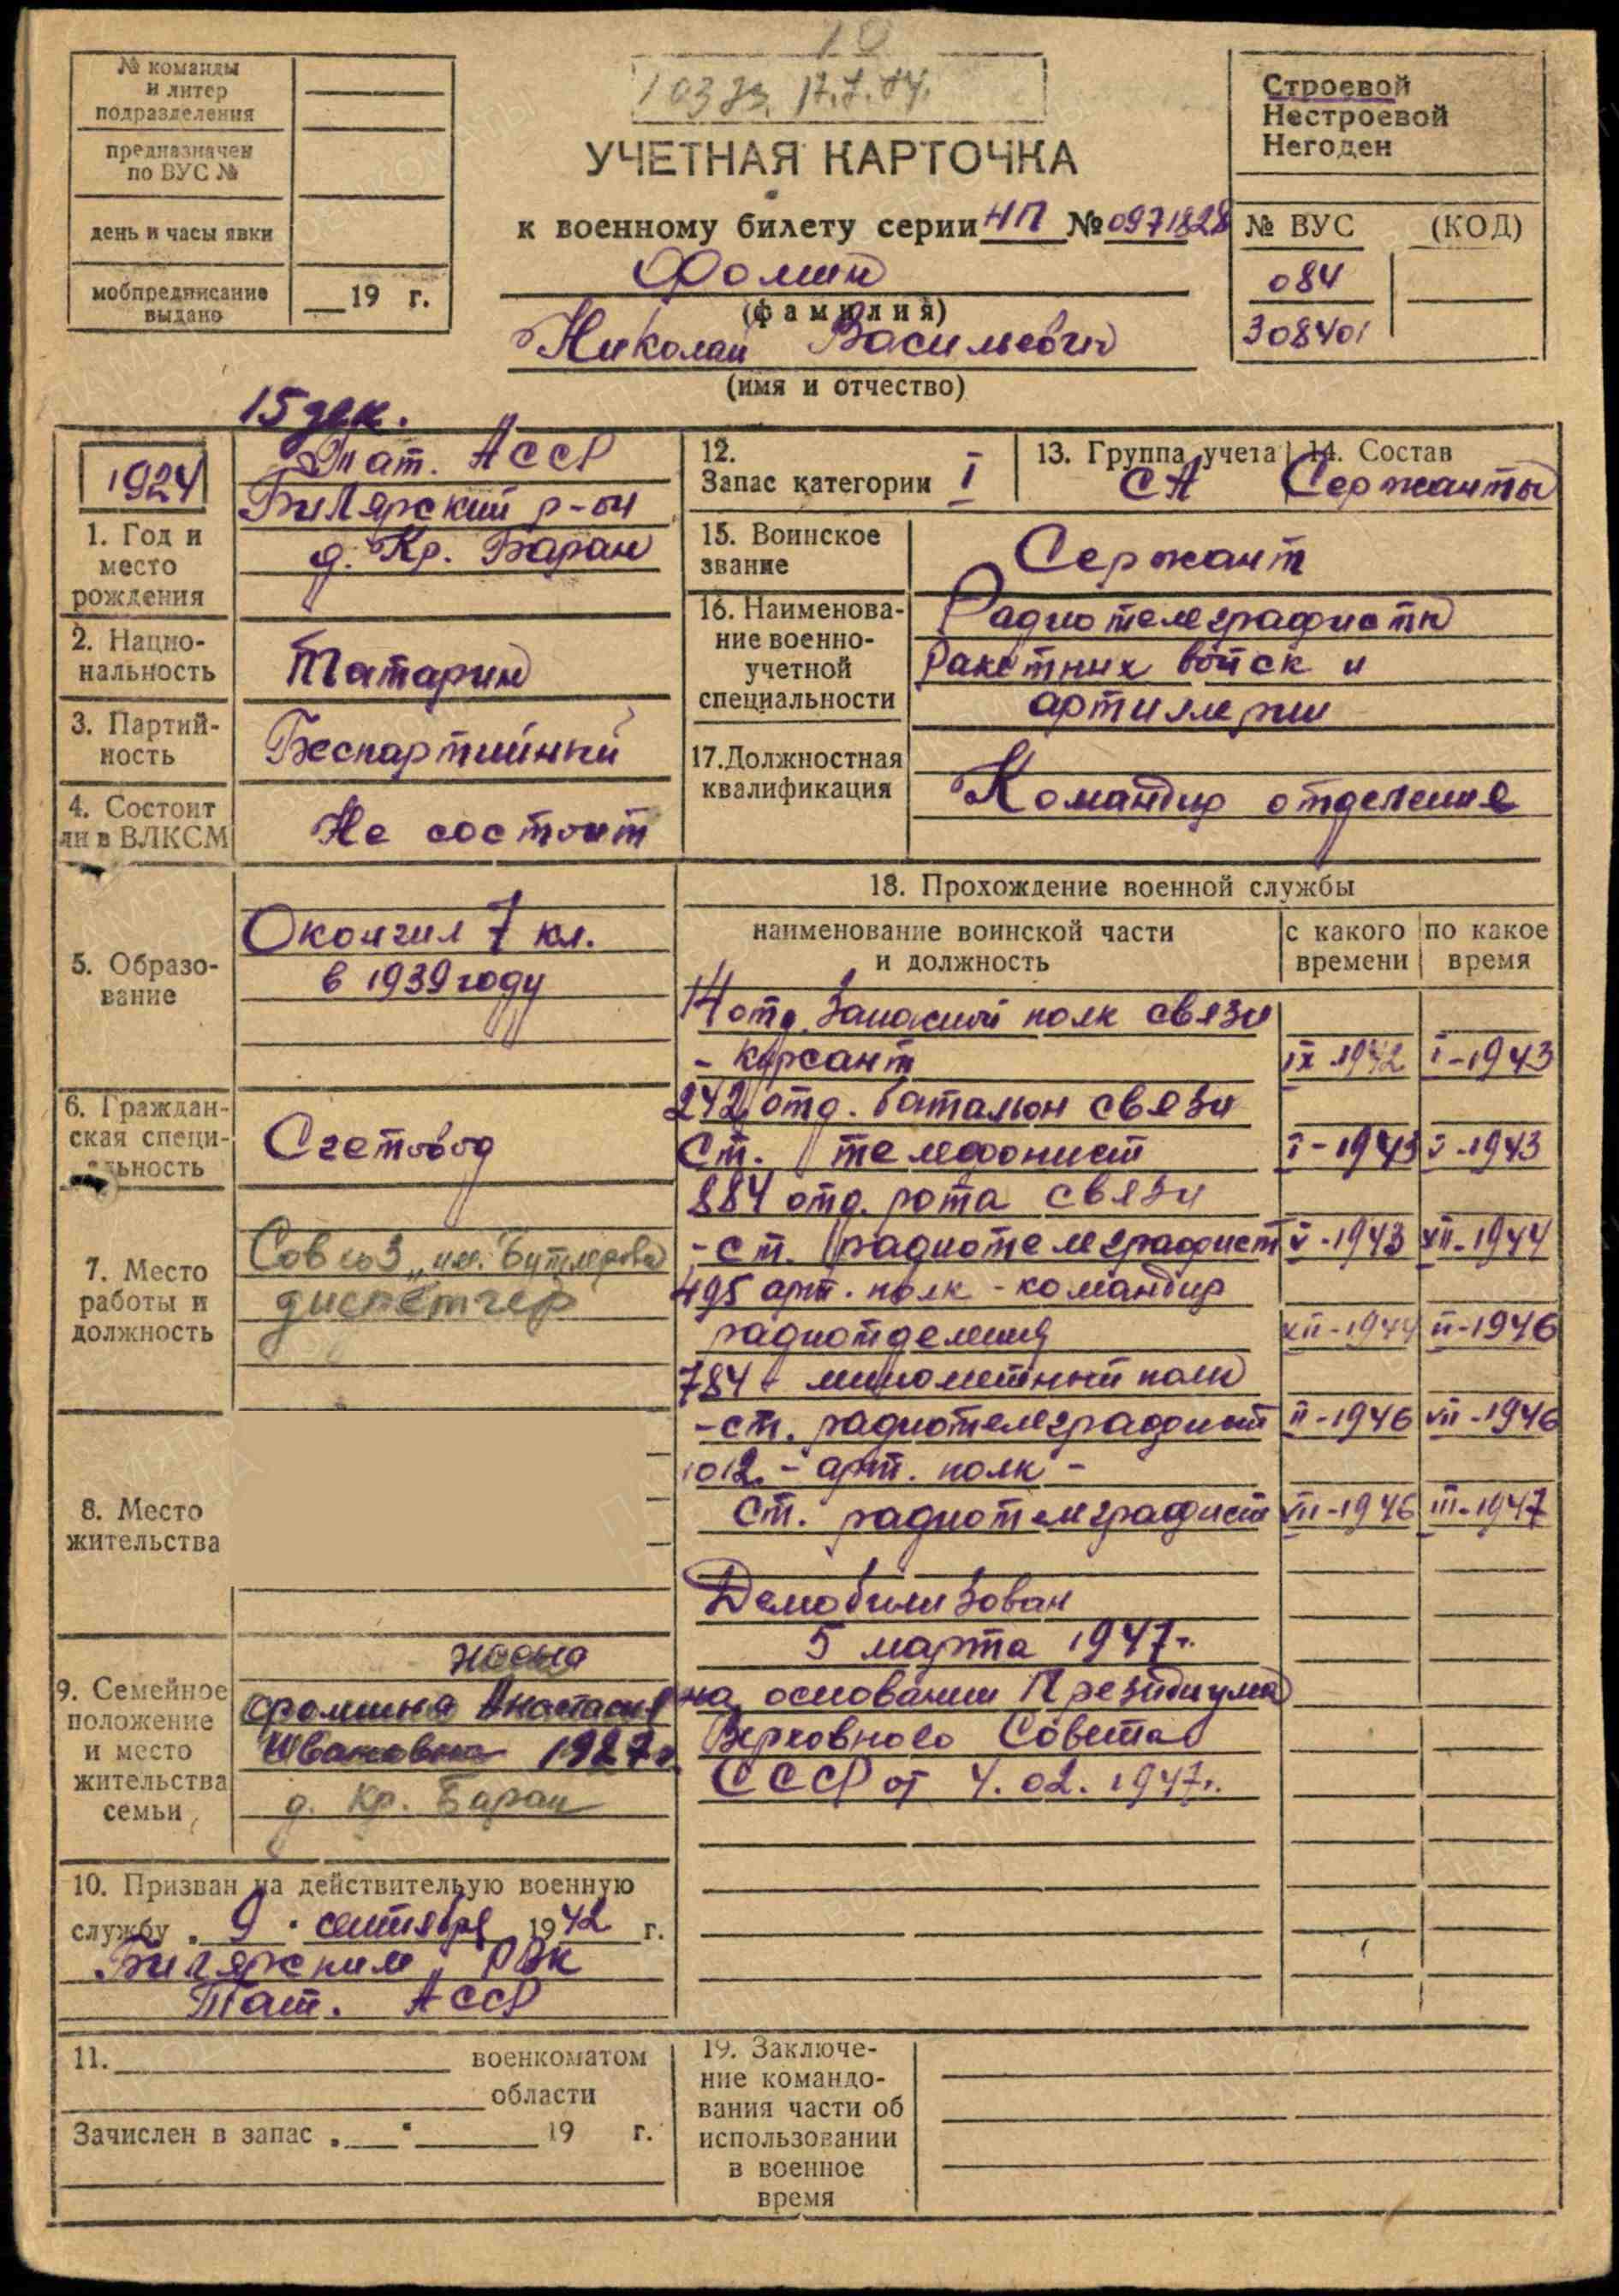 10
№ команды
и литер
подразделения
предназначен
по ВУС №
день и часы явки
мобпредписание
выдано
19 г.
УЧЕТНАЯ КАРТОЧКА
к военному билету серии НП № 0971828
Фомин
(фамилия)
Николай Васильевич
(имя и отчество)
Строевой
Нестроевой
Негоден
№ ВУС (КОД)
084
308401
15 дек.
1924
1. Год и
место
рождения
Тат. АССР
Билярский р-он
д. Кр. Баран
2. Нацио-
нальность
Татарин
3. Партий-
ность
Беспартийный
4. Состоит
ли в ВЛКСМ
Не состоит
5. Образо-
вание
Окончил 7 кл.
в 1939 году
6. Граждан-
ская специ-
альность
Счетовод
7. Место
работы и
должность
Совхоз „им. Бутлерова
диспетчер
8. Место
жительства
9. Семейное
положение
и место
жительства
семьи
жена
Фомина Анастасия
Ивановна 1927 г.
д. Кр. Баран
10. Призван на действительую военную
службу „ 9 " сентября 1942 г.
Билярским РВК
Тат. АССР
11. военкоматом
области
Зачислен в запас „ " 19 г.
12.
Запас категории I
13. Группа учета
СА
14. Состав
Сержанты
15. Воинское
звание
Сержант
16. Наименова-
ние военно-
учетной
специальности
Радиотелеграфисты
Ракетных войск и
артиллерии
17. Должностная
квалификация
Командир отделения
18. Прохождение военной службы
наименование воинской части
и должность
с какого
времени
по какое
время
14 отд. Запасный полк связи
- курсант IX-1942 I-1943
242 отд. батальон связи
Ст. телефонист I-1943 V-1943
884 отд. рота связи
- ст. радиотелеграфист V-1943 XII-1944
495 арт. полк - командир
радиотделения XII-1944 II-1946
784 - минометный полк
- ст. радиотелеграфист II-1946 VII-1946
1012 - арт. полк -
ст. радиотелеграфист VII-1946 III-1947
Демобилизован
5 марта 1947 г.
на основании Президиума
Верховного Совета
СССР от 4.02.1947 г.
19. Заключе-
ние командо-
вания части об
использовании
в военное
время